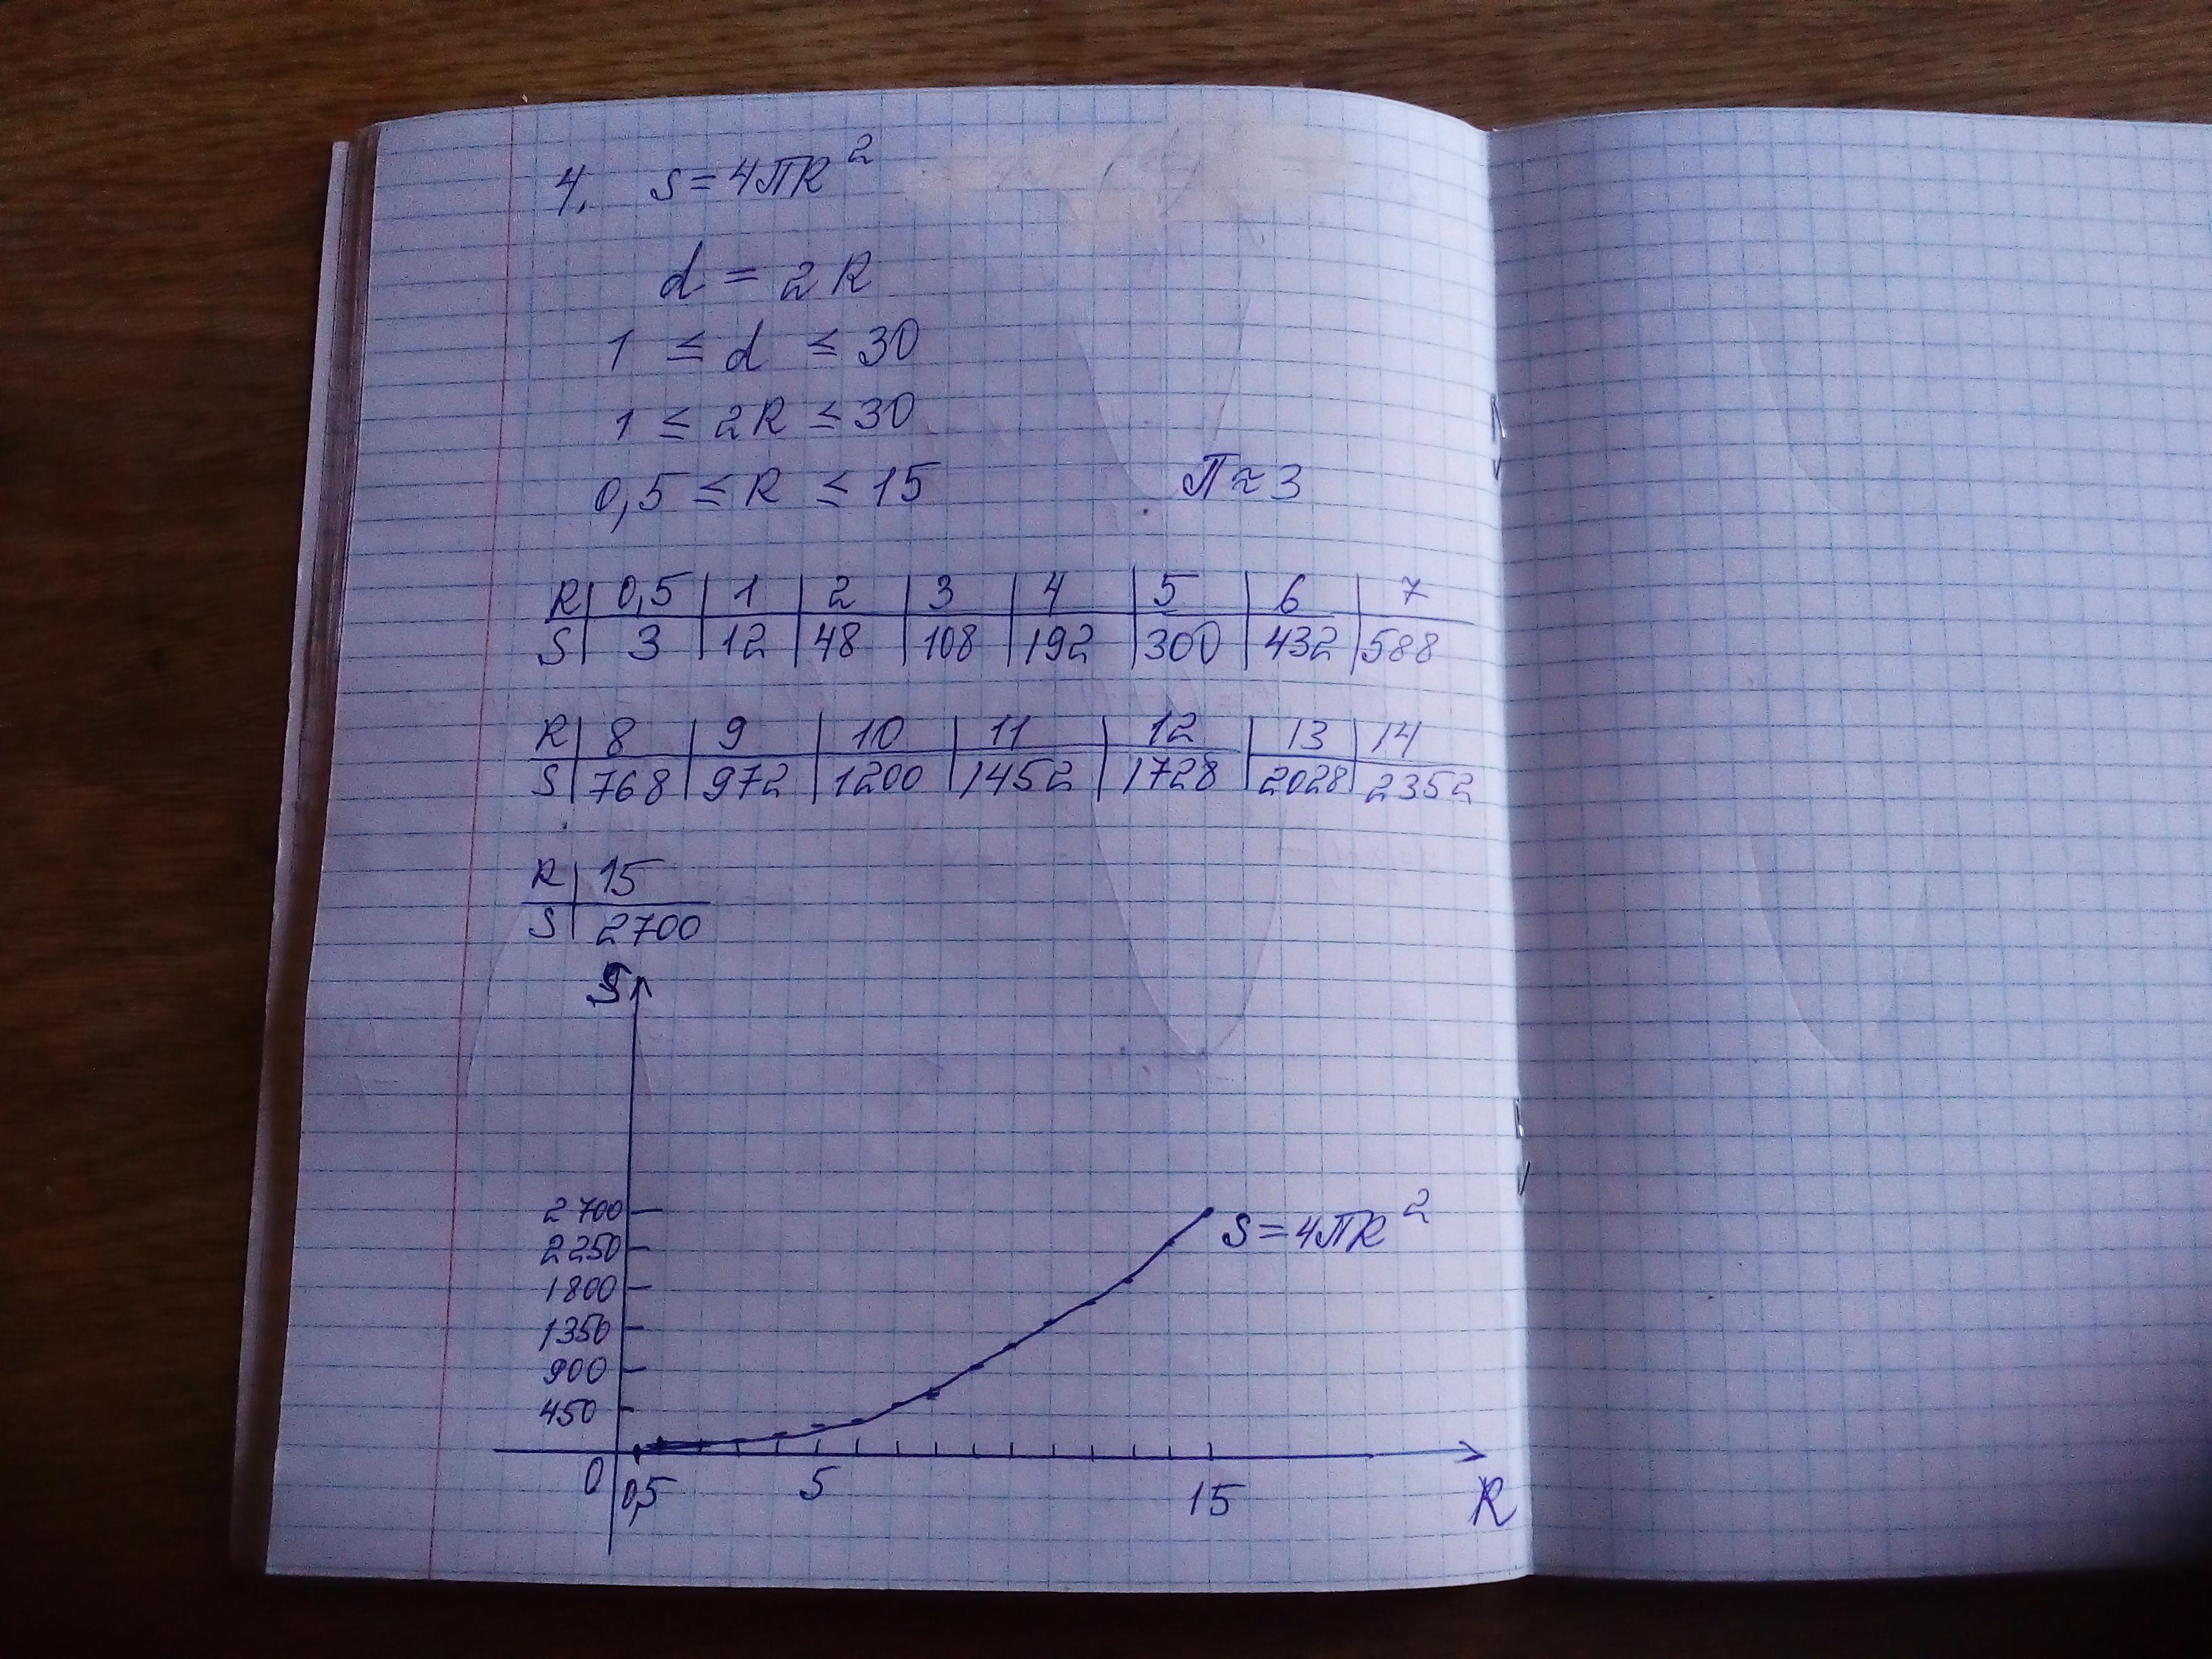 4. S = 4πR²
d = 2R
1 ≤ d ≤ 30
1 ≤ 2R ≤ 30
0,5 ≤ R ≤ 15 π ≈ 3
R | 0,5 | 1 | 2 | 3 | 4 | 5 | 6 | 7
S | 3 | 12 | 48 | 108 | 192 | 300 | 432 | 588
R | 8 | 9 | 10 | 11 | 12 | 13 | 14
S | 768 | 972 | 1200 | 1452 | 1728 | 2028 | 2352
R | 15
S | 2700
S
2700
S = 4πR²
2250
1800
1350
900
450
0 0,5 5 15 R